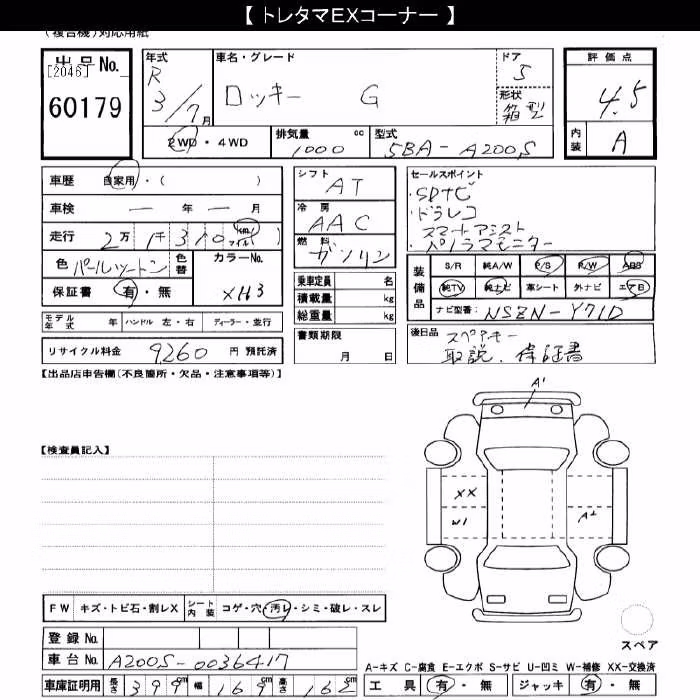 【 トレタマEXコーナー 】
(複合機)対応用紙
出品No.
[2046]
60179
年式 R 3/7月
車名・グレード ロッキー G
ドア 5
形状 箱型
評価点 4.5
内装 A
2WD・4WD
排気量 1000 cc
型式 5BA-A200S
車歴 自家用・( )
車検 ー 年 ー 月
走行 2万 1千 3 1 0 km マイル ( )
色 パールツートン
色替
カラーNo. XH3
保証書 有・無
モデル年式 年 ハンドル 左・右 ディーラー・並行
リサイクル料金 9,260 円 預託済
シフト AT
冷房 AAC
燃料 ガソリン
乗車定員 名
積載量 kg
総重量 kg
書類期限
月 日
セールスポイント
・SDナビ
・ドラレコ
スマートアシスト
・パノラマモニター
装備品
S/R 純A/W P/S P/W ABS
純TV 純ナビ 革シート 外ナビ エアB
ナビ型番: NSZN-Y71D
後日品 スペアキー
取説、保証書
【出品店申告欄(不良箇所・欠品・注意事項等)】
【検査員記入】
A1
XX
W1
A2
スペア
FW キズ・トビ石・割レX
シート内装 コゲ・穴・汚レ・シミ・破レ・スレ
登録No.
車台No. A200S-0036417
車庫証明用 長さ 399cm 幅 169cm 高さ 162cm
A-キズ C-腐食 E-エクボ S-サビ U-凹ミ W-補修 XX-交換済
工具 有・無 ジャッキ 有・無